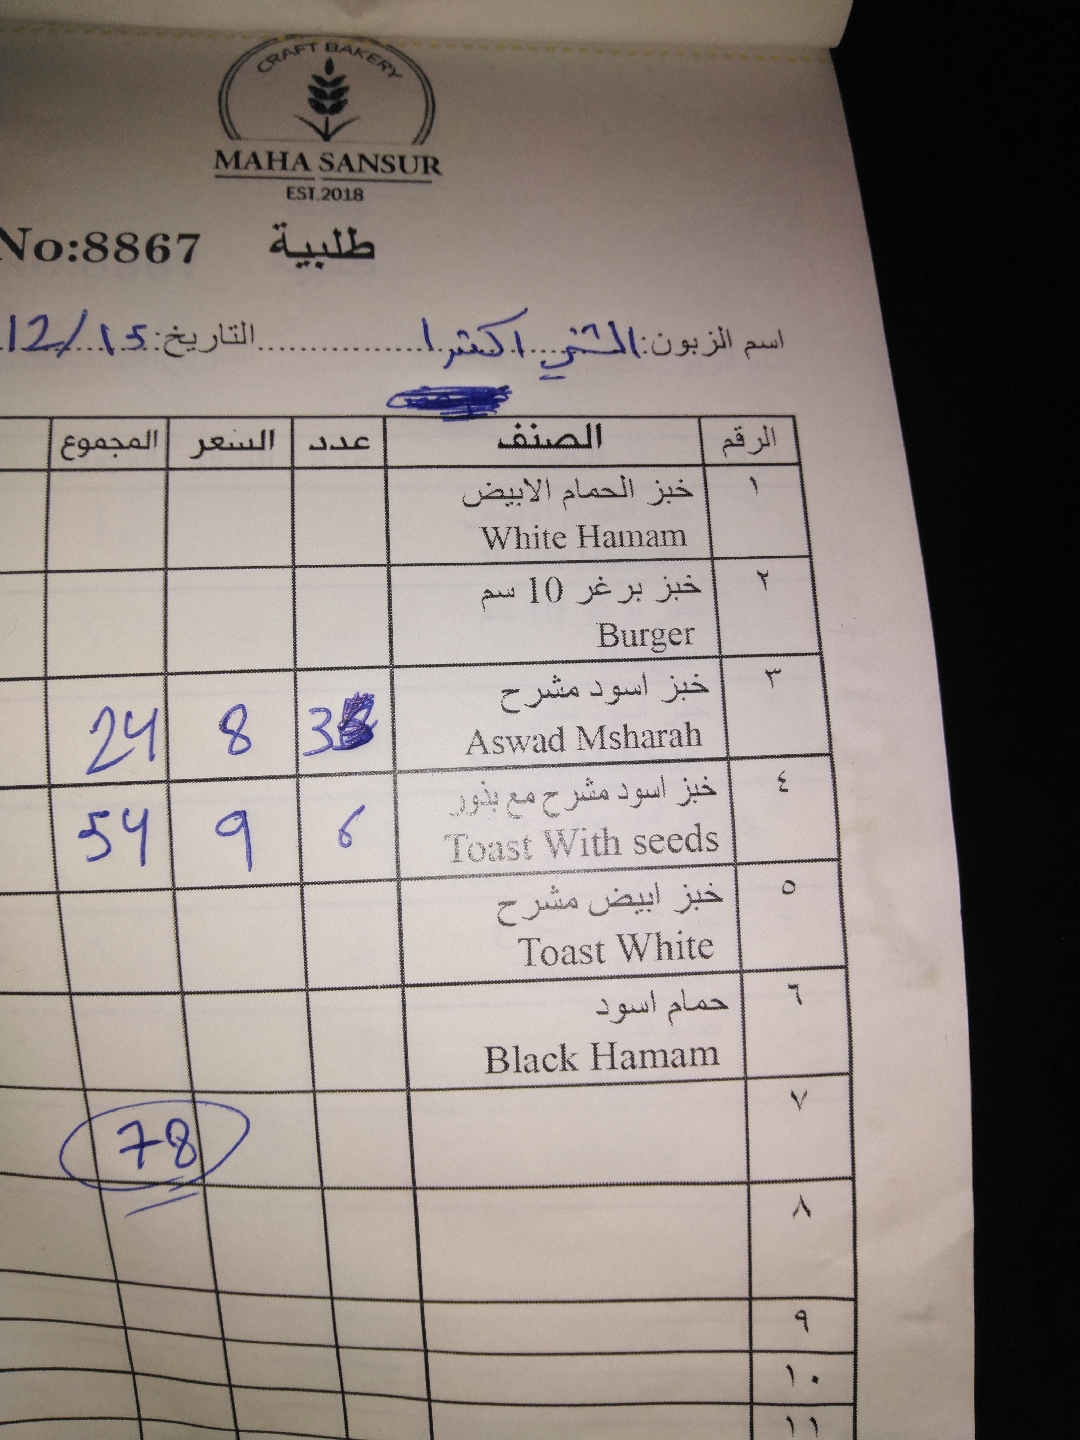 CRAFT BAKERY
MAHA SANSUR
EST.2018
طلبية No:8867
اسم الزبون: اكسترا التاريخ: 12/15
الرقم الصنف عدد السعر المجموع
١ خبز الحمام الابيض
White Hamam
٢ خبز برغر 10 سم
Burger
٣ خبز اسود مشرح 3 8 24
Aswad Msharah
٤ خبز اسود مشرح مع بذور 6 9 54
Toast With seeds
٥ خبز ابيض مشرح
Toast White
٦ حمام اسود
Black Hamam
٧ 78
٨
٩
١٠
١١